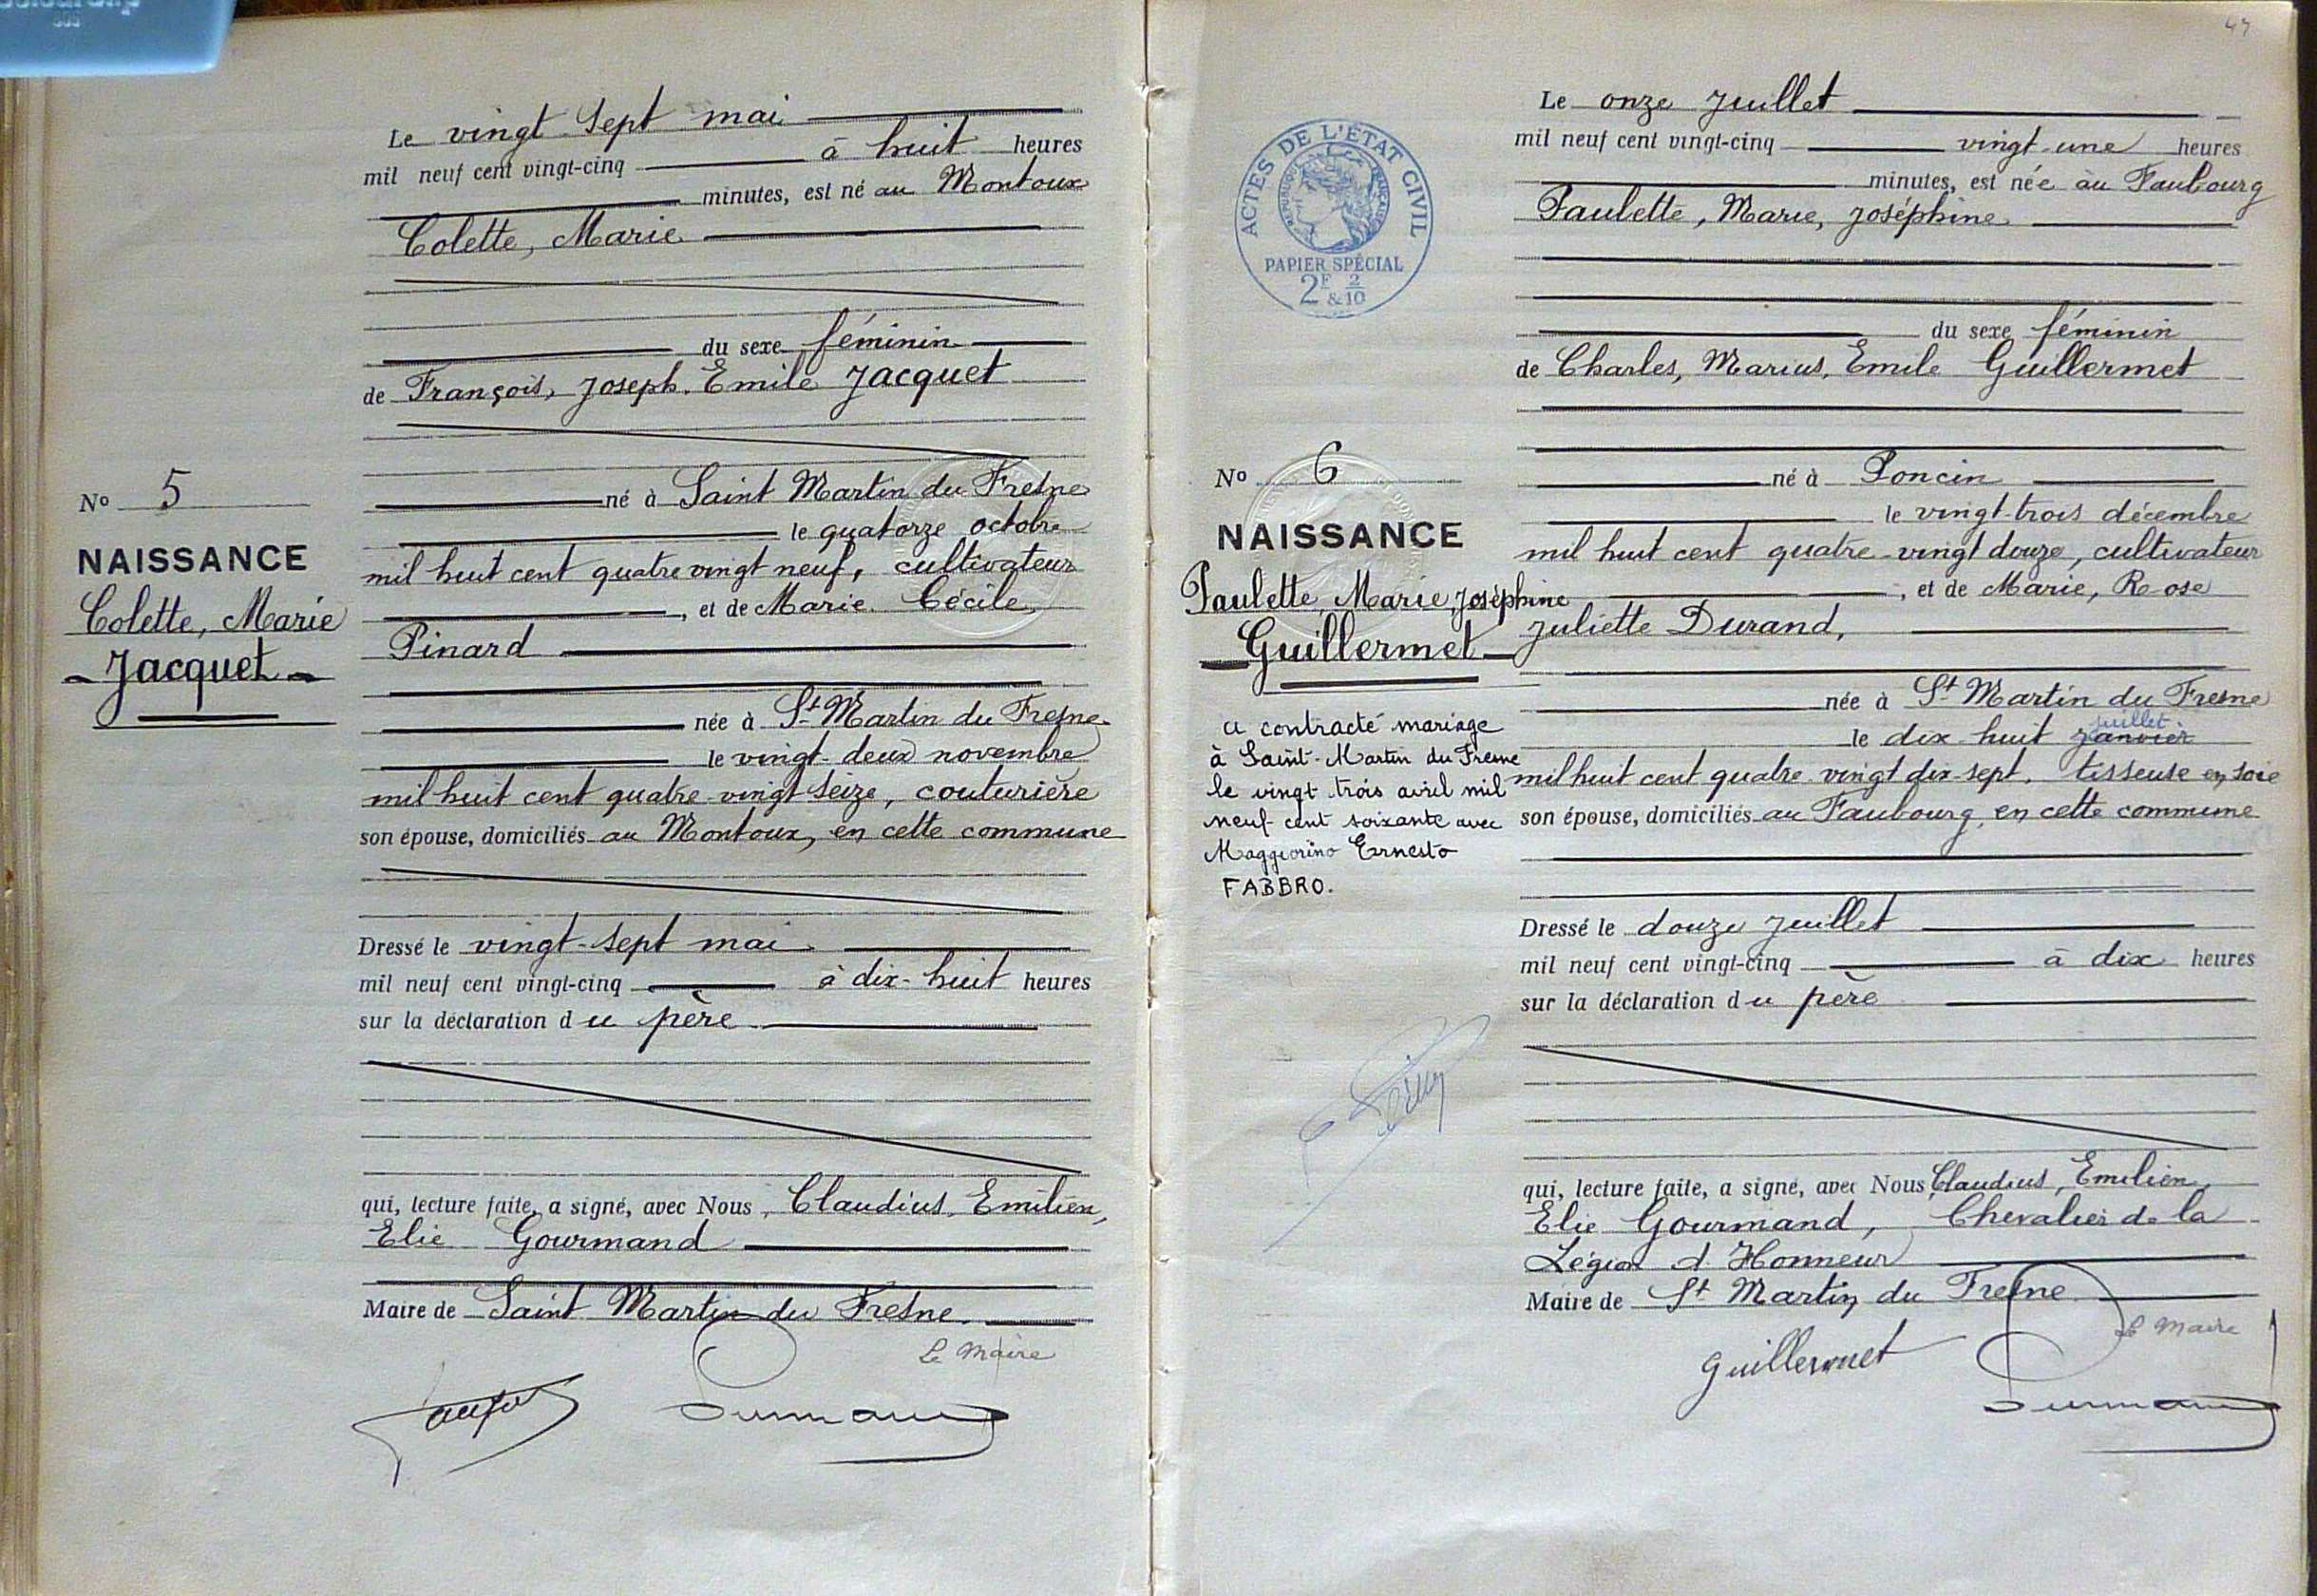 Le vingt sept mai
mil neuf cent vingt-cinq à huit heures
minutes, est né au Montoux
Colette, Marie
du sexe féminin
de François, Joseph, Emile Jacquet
né à Saint Martin du Fresne
le quatorze octobre
mil huit cent quatre vingt neuf, cultivateur
, et de Marie, Cécile,
Pinard
née à St Martin du Fresne
le vingt-deux novembre
mil huit cent quatre-vingt seize, couturière
son épouse, domiciliés au Montoux, en cette commune
Dressé le vingt-sept mai
mil neuf cent vingt-cinq à dix-huit heures
sur la déclaration du père
qui, lecture faite, a signé, avec Nous, Claudius, Emilien,
Elie Gourmand
Maire de Saint Martin du Fresne.
Le Maire
No 5
NAISSANCE
Colette, Marie
Jacquet
47
ACTES DE L'ÉTAT CIVIL
RÉPUBLIQUE FRANÇAISE
PAPIER SPÉCIAL
2F & 2/10
Le onze juillet
mil neuf cent vingt-cinq vingt-une heures
minutes, est née au Faubourg
Paulette, Marie, Joséphine
du sexe féminin
de Charles, Marius, Emile Guillermet
né à Poncin
le vingt-trois décembre
mil huit cent quatre-vingt douze, cultivateur
, et de Marie, Rose
Juliette Durand,
née à St Martin du Fresne
juillet
le dix-huit janvier
mil huit cent quatre-vingt dix-sept, tisseuse en soie
son épouse, domiciliés au Faubourg, en cette commune
Dressé le douze juillet
mil neuf cent vingt-cinq à dix heures
sur la déclaration du père
qui, lecture faite, a signé, avec Nous Claudius, Emilien,
Elie Gourmand, Chevalier de la
Légion d'Honneur
Maire de St Martin du Fresne
Le Maire
Guillermet
No 6
NAISSANCE
Paulette, Marie, Joséphine
Guillermet
a contracté mariage
à Saint-Martin du Fresne
le vingt trois avril mil
neuf cent soixante avec
Maggiorino Ernesto
FABBRO.